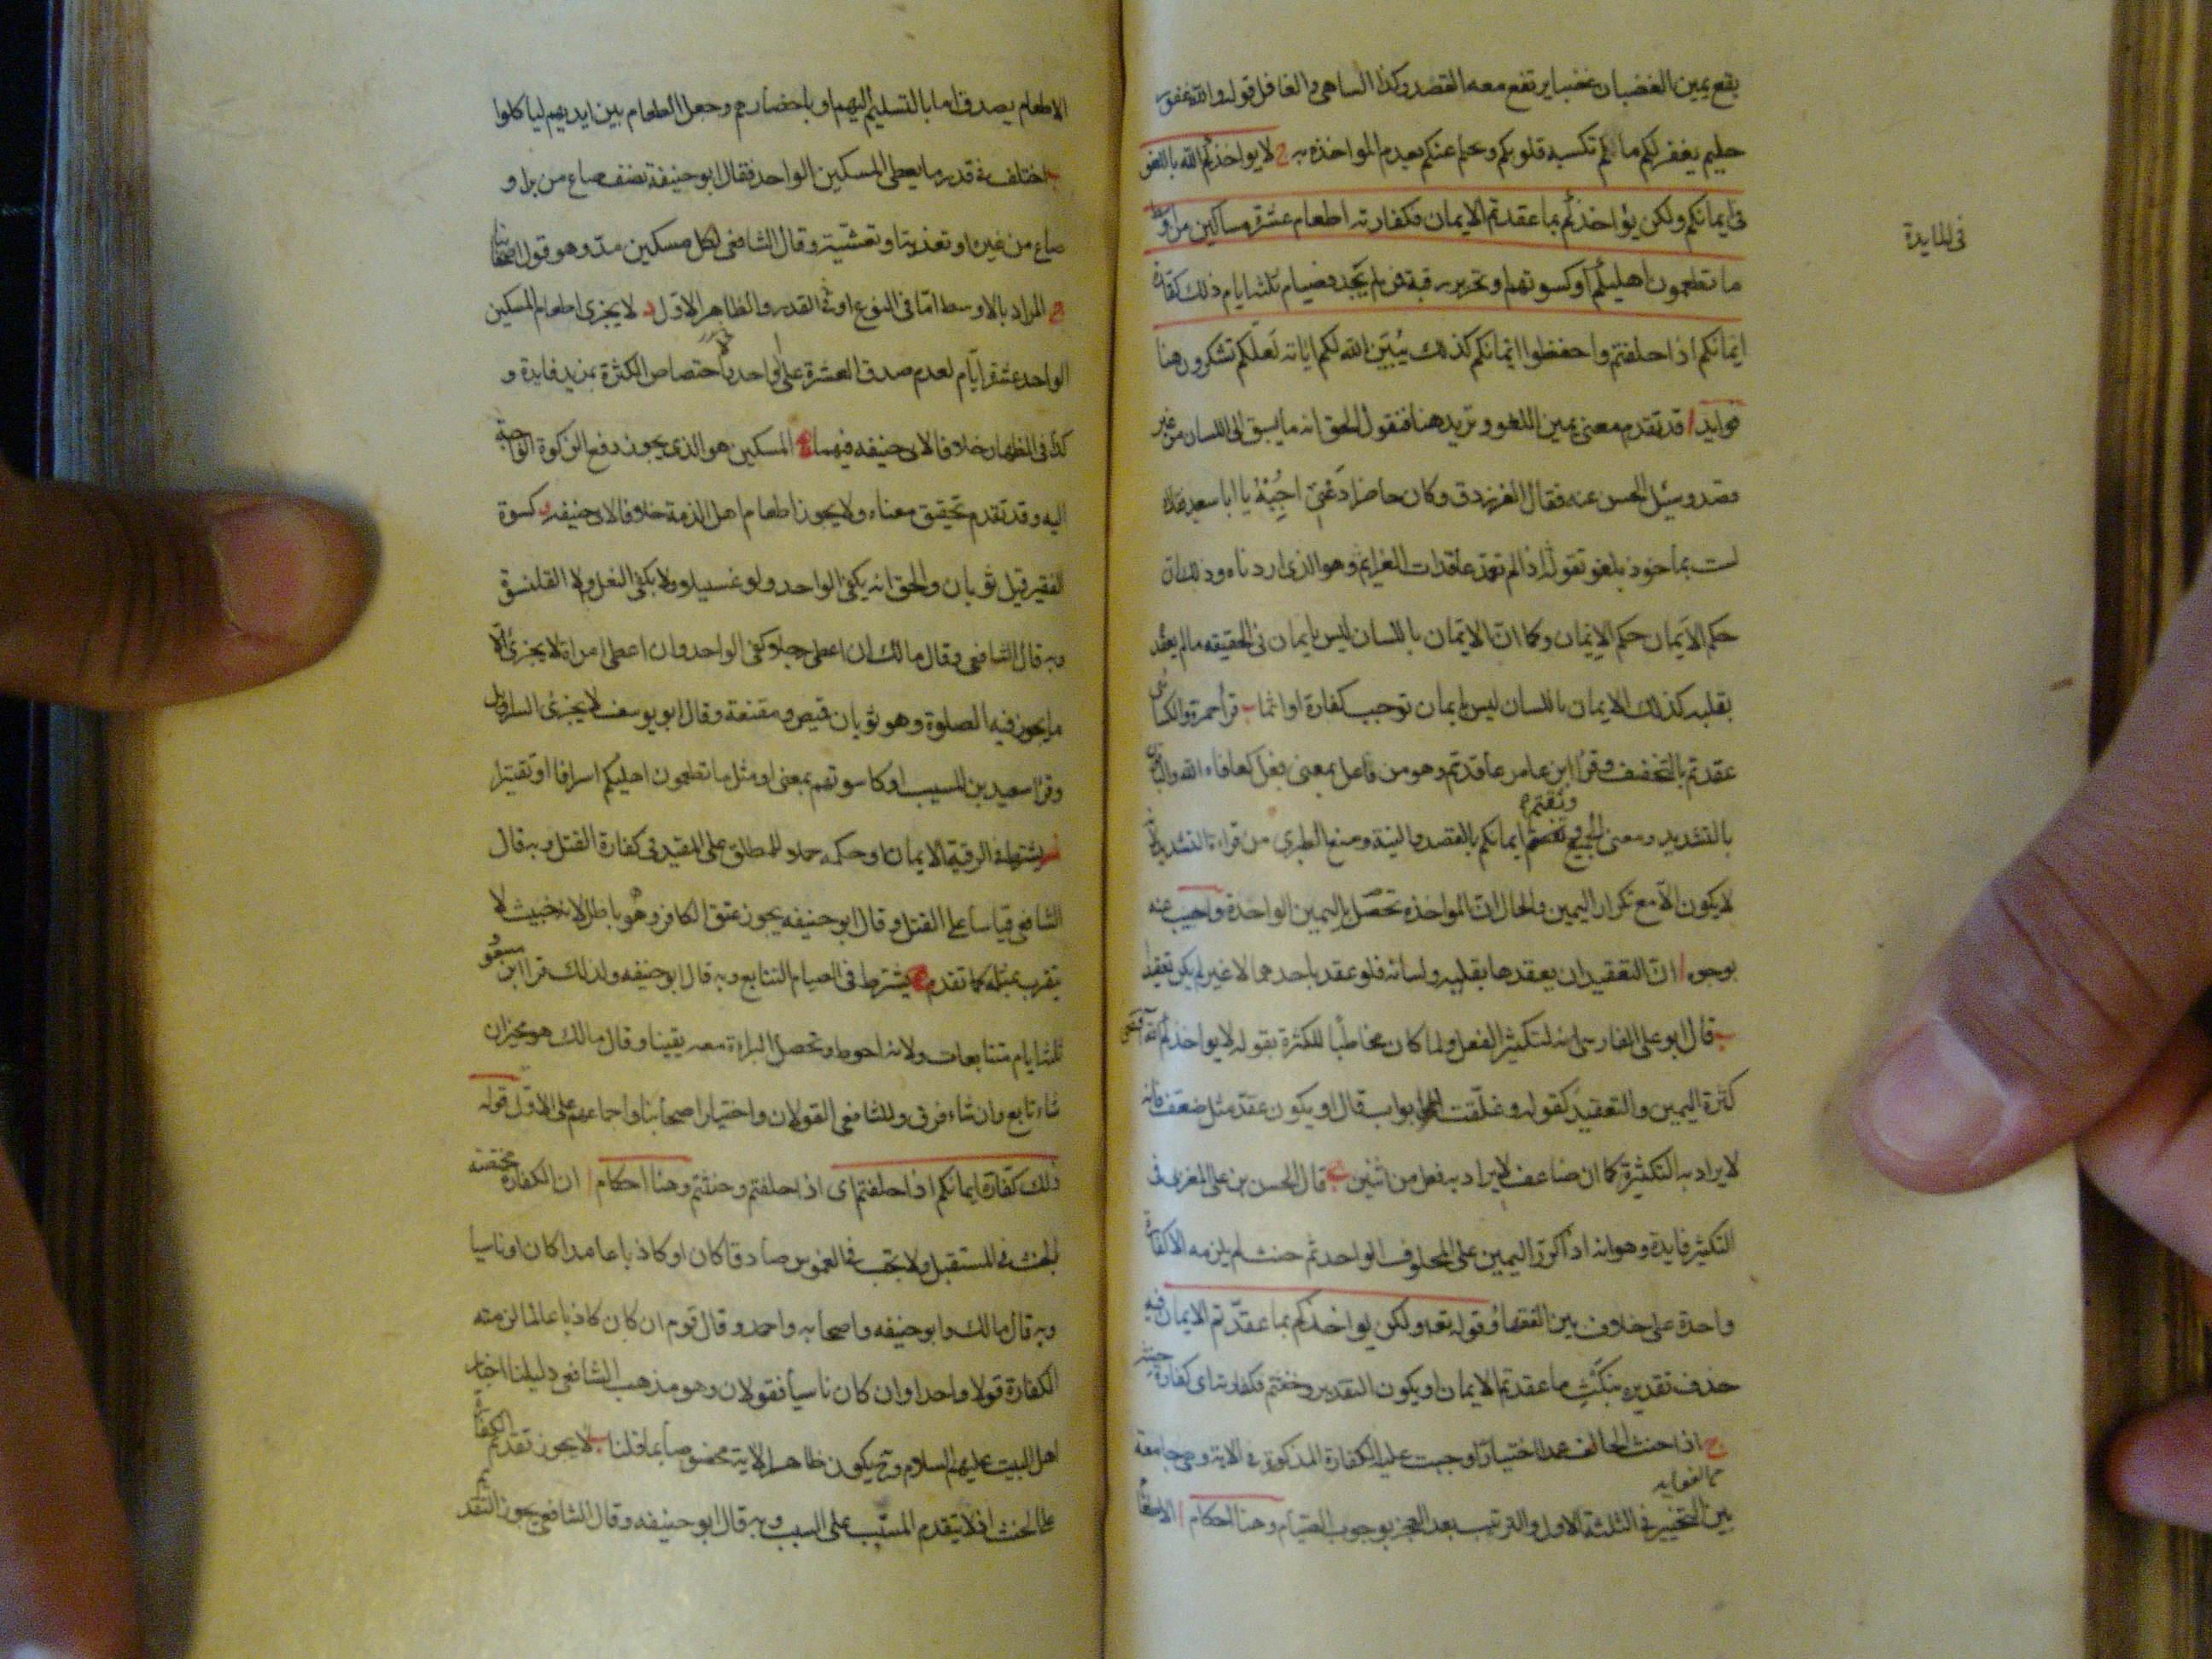 يقع يمين الغضبان غضبا يرتفع معه القصد وكذا الساهى والغافل قوله والله غفور
حليم يغفر لكم ما لم تكسبه قلوبكم وحلم عنكم بعدم المواخذه به ج لا يواخذكم الله باللغو
فى ايمانكم ولكن يؤاخذكم بما عقدتم الايمان فكفارته اطعام عشرة مساكين من اوسط
فى المايدة
ما تطعمون اهليكم او كسوتهم او تحرير رقبة فمن لم يجد فصيام ثلثة ايام ذلك كفارة
ايمانكم اذا حلفتم واحفظوا ايمانكم كذلك يبين الله لكم اياته لعلكم تشكرون هنا
فوايد ا قد تقدم معنى يمين اللغو ونزيد هنا فنقول الحق انه ما يسبق الى اللسان من غير
قصد وسئل الحسن عنه فقال الفرزدق وكان حاضرا دعنى اجيبه يا ابا سعيد فقال
لست بماخوذ بلغو تقوله اذا لم تعمد عاقدات العزايم وهو الذى اردناه وذلك ان
حكم الايمان حكم الايمان وكما ان الايمان باللسان ليس بايمان فى الحقيقه ما لم يعقد
بقلبه كذلك الايمان باللسان ليس بايمان توجب كفارة او اثما ب قرأ حمزة والكسائى
عقدتم بالتخفيف وقرأ ابن عامر عاقدتم وهو من فاعل بمعنى فعل كعافاه الله والباقون
بالتشديد ومعنى الجميع ايمانكم بالقصد والنية ومنع الطبرى من قراءة التشديد لانه
لا يكون الا مع تكرار اليمين والحال ان المواخذه تحصل باليمين الواحدة واجيب عنه
بوجوه ا ان التعقيد ان يعقدها بقلبه ولسانه فلو عقد باحدهما لا غير لم يكن تعقيدا
ب قال ابو على الفارسى انه لتكثير الفعل ولما كان مخاطبا للكثرة بقوله لا يواخذكم الله اقتضى
كثرة اليمين والتعقيد كقوله وغلقت الابواب قال او يكون عقد مثل ضعف فانه
لا يراد به التكثير كما ان ضاعف لا يراد به فعل من اثنين ج قال الحسن بن على المغربى فى
التكثير فايدة وهو انه اذا كرر اليمين على المحلوف الواحد ثم حنث لم يلزمه الا كفارة
واحدة على خلاف بين الفقهاء وقوله تعه ولكن يواخذكم بما عقدتم الايمان فيه
حذف تقديره بنكث ما عقدتم الايمان او يكون التقدير وحنثتم فكفارته اى كفارة حنثه
ج اذا حنث الحالف عمدا اختيارا وجبت عليه الكفارة المذكورة فى الاية وهى جامعة
بين التخيير فى الثلثة الاول والترتيب بعد العجز بوجوب الصيام وهنا احكام ا الاطعام
الاطعام يصدق اما بالتسليم اليهم او باحضارهم وجعل الطعام بين ايديهم لياكلوا
ب اختلف فى قدر ما يعطى المسكين الواحد فقال ابو حنيفة نصف صاع من بر او
صاع من غيره او تغذيته وتعشيته وقال الشافعى لكل مسكين مد وهو قول اصحابنا
ج المراد بالاوسط اما فى النوع او فى القدر والظاهر الاول د لا يجزى اطعام المسكين
الواحد عشرة ايام لعدم صدق العشرة على الواحد واختصاص الكثرة بمزيد فايدة و
كذا فى الظهار خلافا لابى حنيفه فيهما ه المسكين هو الذى يجوز دفع الزكوة الواجبة
اليه وقد تقدم تحقيق معناه ولا يجوز اطعام اهل الذمة خلافا لابى حنيفه و كسوة
الفقير قيل ثوبان والحق انه يكفى الواحد ولو غسيلا ولا يكفى النعل ولا القلنسوة
وبه قال الشافعى وقال مالك ان اعطى رجلا كفى الواحد وان اعطى امراة لا يجزى الا
ما يجوز فيه الصلوة وهو ثوبان قميص ومقنعة وقال ابو يوسف لا يجزى السراويل
وقرأ سعيد بن المسيب او كاسوتهم بمعنى او مثل ما تطعمون اهليكم اسرافا او تقتيرا
ز يشترط فى الرقبة الايمان او حكمه حملا للمطلق على المقيد فى كفارة القتل وبه قال
الشافعى قياسا على القتل وقال ابو حنيفه يجوز عتق الكافر وهو باطل لانه خبيث لا
يتقرب بمثله كما تقدم ح يشترط فى الصيام التتابع وبه قال ابو حنيفه ولذلك قرا ابن مسعود
ثلثة ايام متتابعات ولانه احوط وتحصل البراءة معه يقينا وقال مالك هو مخير ان
شاء تابع وان شاء فرق وللشافعى القولان واختيار اصحابنا واجماعهم على الاول قوله
ذلك كفارة ايمانكم اذا حلفتم اى اذا حلفتم وحنثتم وهنا احكام ا ان الكفارة مختصة
بالحنث فى المستقبل ولا تجب فى الغموس صادقا كان او كاذبا عامدا كان او ناسيا
وبه قال مالك وابو حنيفه واصحابه واحمد وقال قوم ان كان كاذبا عالما لزمته
الكفارة قولا واحدا وان كان ناسيا فقولان وهو مذهب الشافعى دليلنا اخبار
اهل البيت عليهم السلام ويكون ظاهر الاية مخصوصا بما قلنا ب لا يجوز تقديم الكفارة
على الحنث اذ لا يتقدم المسبب على السبب وبه قال ابو حنيفه وقال الشافعى يجوز التقديم